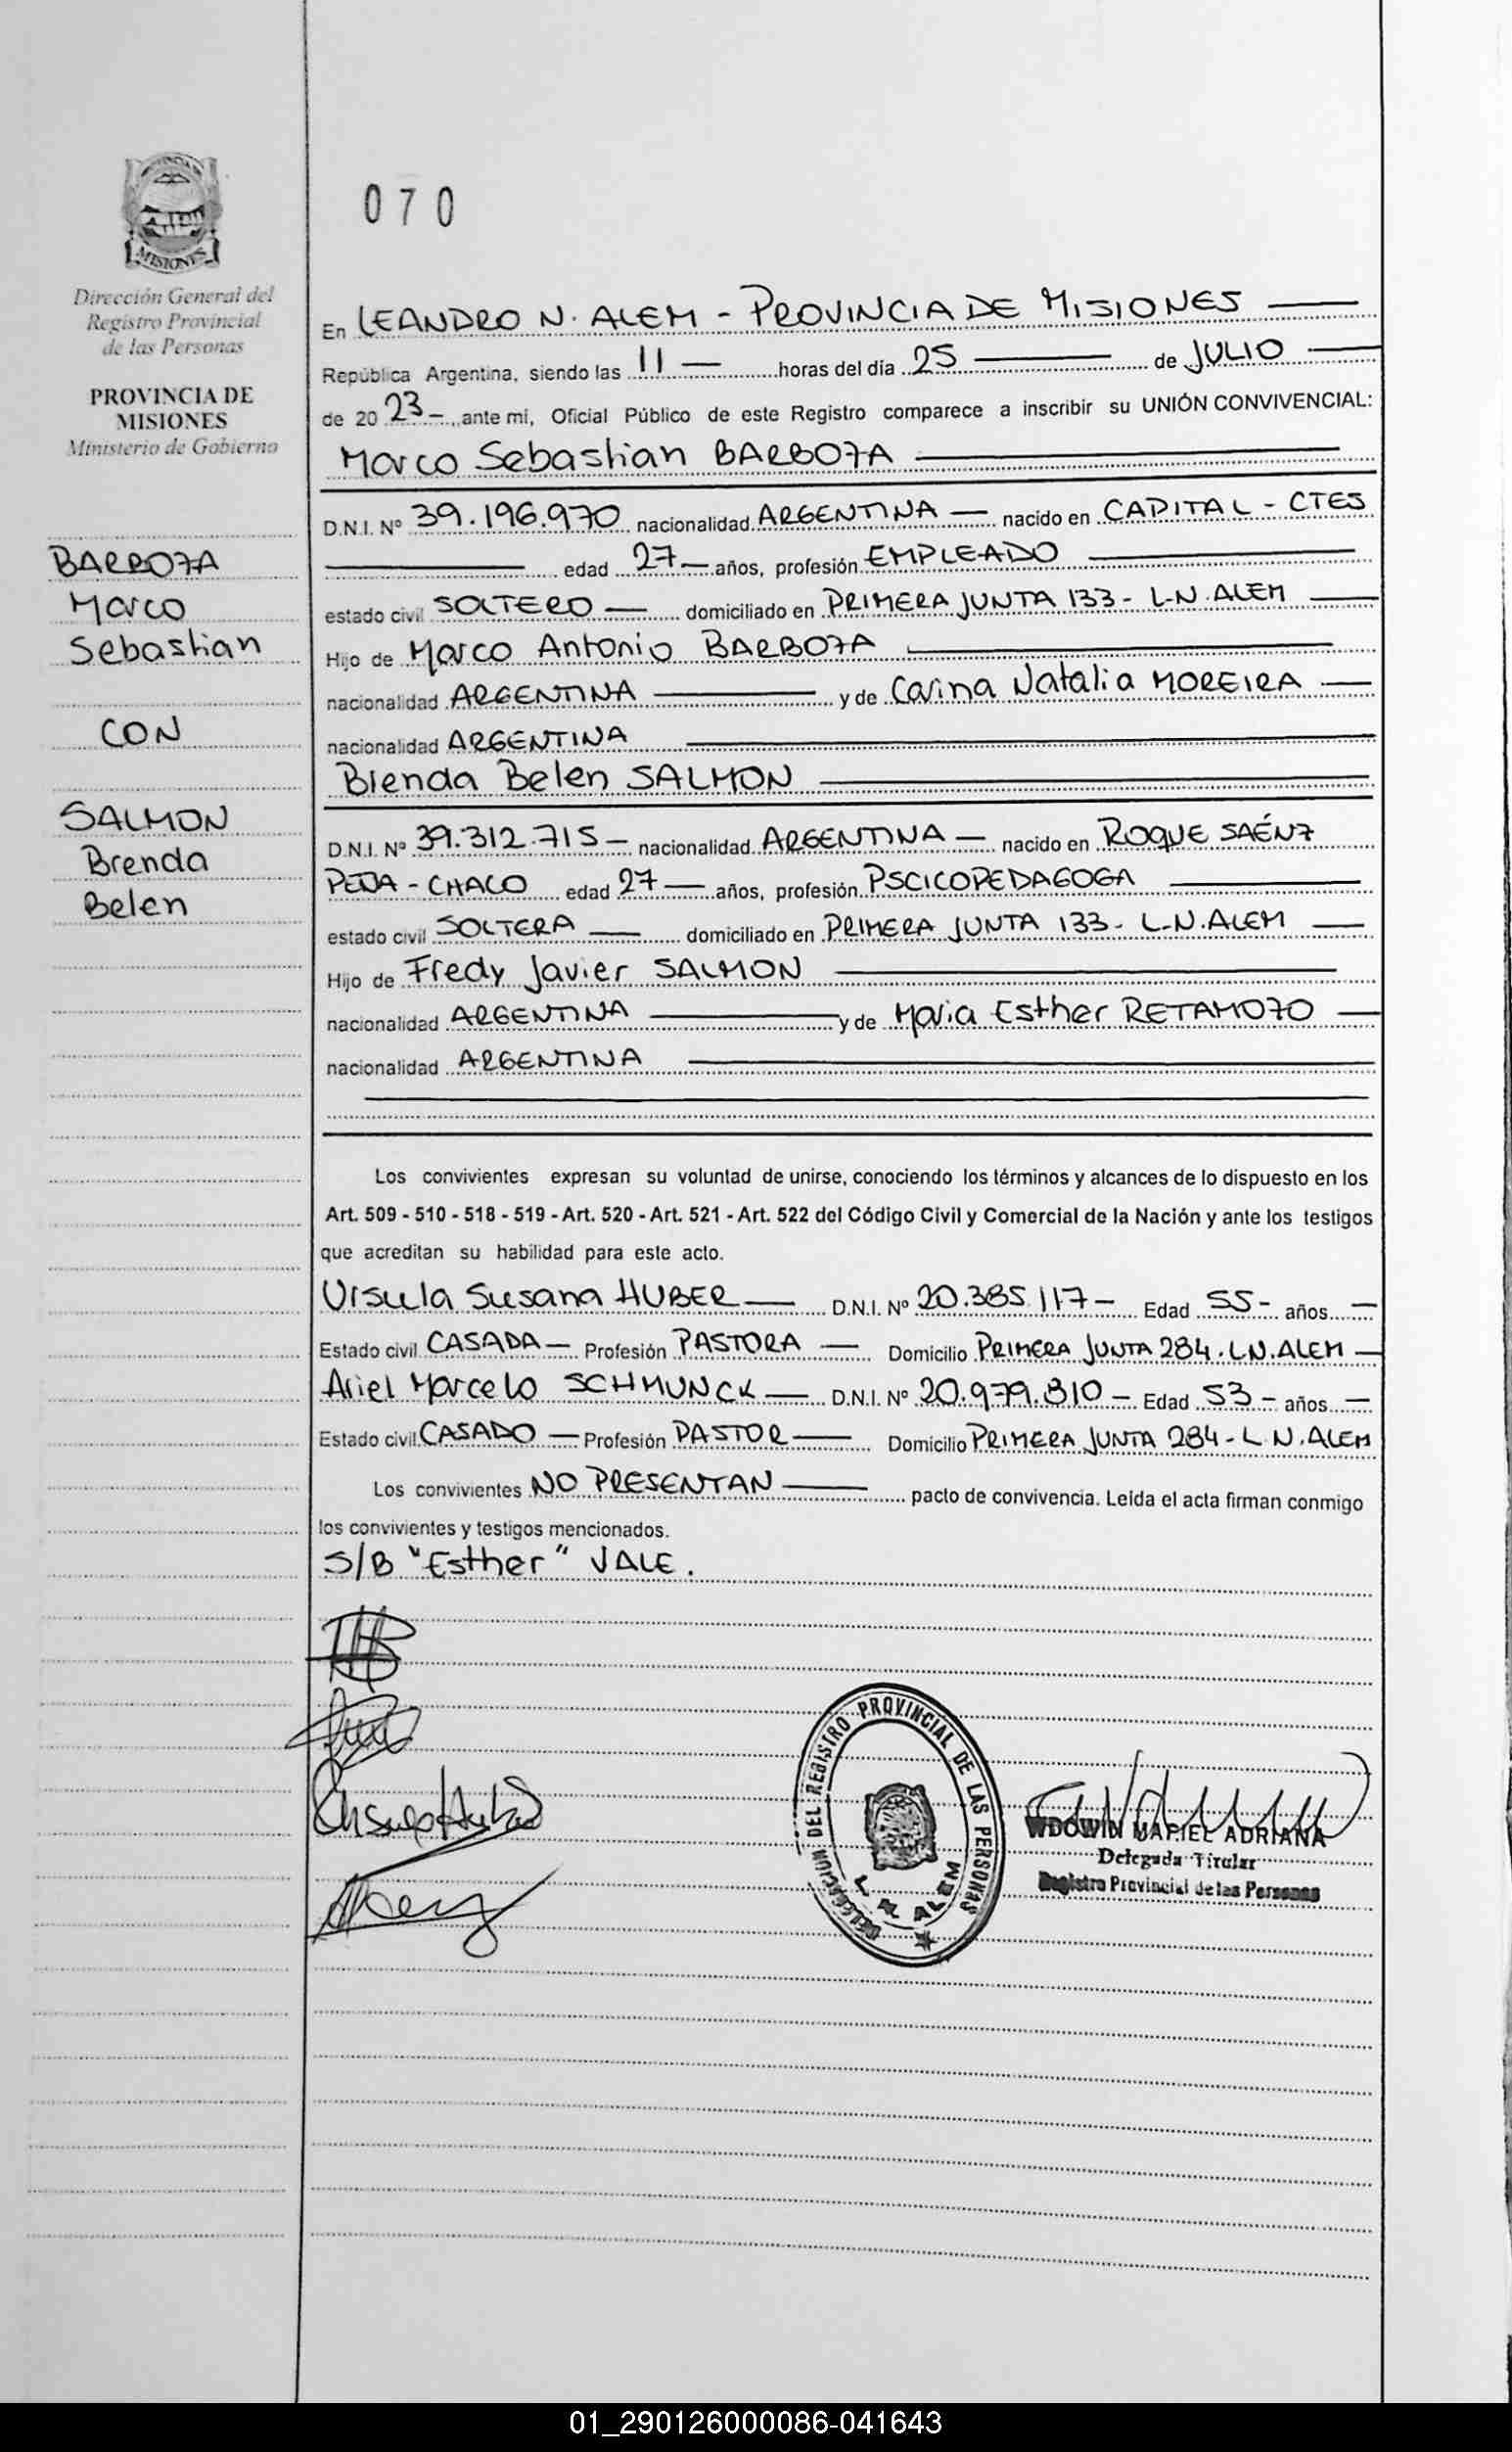 PROVINCIA DE
MISIONES
Dirección General del
Registro Provincial
de las Personas
PROVINCIA DE
MISIONES
Ministerio de Gobierno
BARBOZA
Marco
Sebastian
CON
SALMON
Brenda
Belen
070
En LEANDRO N. ALEM - PROVINCIA DE MISIONES
República Argentina, siendo las 11 — horas del día 25 — de JULIO —
de 20 23 -, ante mi, Oficial Público de este Registro comparece a inscribir su UNIÓN CONVIVENCIAL:
Marco Sebastian BARBOZA
D.N.I. Nº 39.196.970 nacionalidad ARGENTINA — nacido en CAPITAL - CTES
— edad 27 — años, profesión EMPLEADO —
estado civil SOLTERO — domiciliado en PRIMERA JUNTA 133 - L.N. ALEM —
Hijo de Marco Antonio BARBOZA —
nacionalidad ARGENTINA — y de Carina Natalia MOREIRA —
nacionalidad ARGENTINA —
Brenda Belen SALMON —
D.N.I. Nº 39.312.715 — nacionalidad ARGENTINA — nacido en ROQUE SAÉNZ
PEÑA - CHACO edad 27 — años, profesión PSCICOPEDAGOGA —
estado civil SOLTERA — domiciliado en PRIMERA JUNTA 133 - L.N. ALEM —
Hijo de Fredy Javier SALMON —
nacionalidad ARGENTINA — y de Maria Esther RETAMOZO —
nacionalidad ARGENTINA —
Los convivientes expresan su voluntad de unirse, conociendo los términos y alcances de lo dispuesto en los
Art. 509 - 510 - 518 - 519 - Art. 520 - Art. 521 - Art. 522 del Código Civil y Comercial de la Nación y ante los testigos
que acreditan su habilidad para este acto.
Ursula Susana HUBER — D.N.I. Nº 20.385.117 — Edad 55 - años —
Estado civil CASADA — Profesión PASTORA — Domicilio PRIMERA JUNTA 284. L.N. ALEM —
Ariel Marcelo SCHMUNCK — D.N.I. Nº 20.979.810 — Edad 53 - años —
Estado civil CASADO — Profesión PASTOR — Domicilio PRIMERA JUNTA 284 - L.N. ALEM
Los convivientes NO PRESENTAN — pacto de convivencia. Leída el acta firman conmigo
los convivientes y testigos mencionados.
S/B "Esther" VALE.
DELEGACION DEL REGISTRO PROVINCIAL DE LAS PERSONAS
L. N. ALEM
WDOWIN MARIEL ADRIANA
Delegada Titular
Registro Provincial de las Personas
01_290126000086-041643